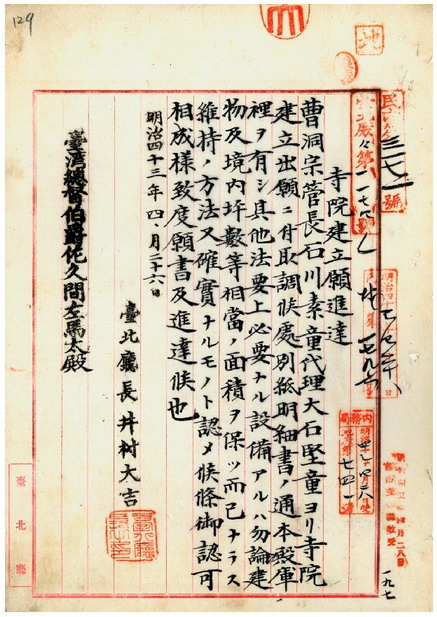 129
地
民
三七一號
寺院建立願進達
曹洞宗管長石川素童代理大石堅童ヨリ寺院
建立出願ニ付取調候處別紙明細書ノ通本殿庫
裡ヲ有シ其他法要上必要ナル設備アルハ勿論建
物及境内坪數等相當ノ面積ヲ保ツ而已ナラス
維持ノ方法又確實ナルモノト認メ候條御認可
相成様致度願書及進達候也
明治四十三年四月二十六日
臺北廳長井村大吉
臺灣總督伯爵佐久間左馬太殿
內務局
七四一
一九七
臺北廳